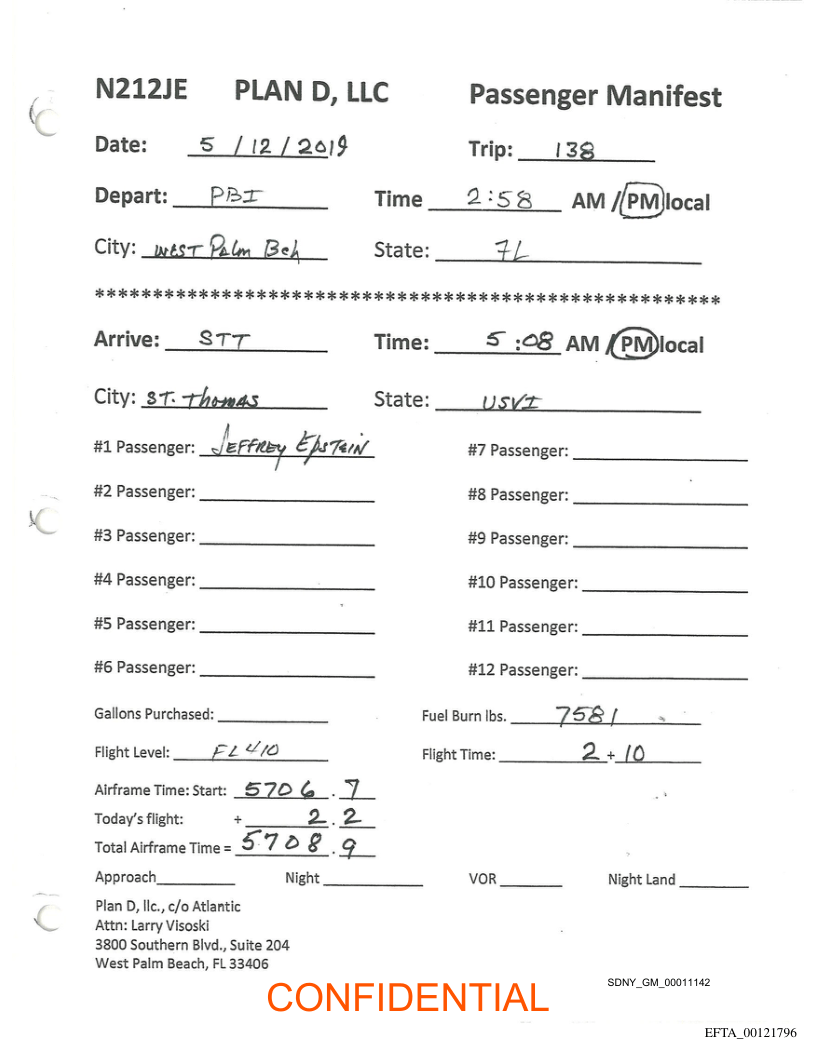 N212JE PLAN D, LLC Passenger Manifest
Date: 5 / 12 / 2019 Trip: 138
Depart: PBI Time 2:58 AM / PM local
City: WEST Palm Bch State: FL
*****************************************************
Arrive: STT Time: 5:08 AM / PM local
City: ST. Thomas State: USVI
#1 Passenger: JEFFREY EPSTEIN #7 Passenger:
#2 Passenger: #8 Passenger:
#3 Passenger: #9 Passenger:
#4 Passenger: #10 Passenger:
#5 Passenger: #11 Passenger:
#6 Passenger: #12 Passenger:
Gallons Purchased: Fuel Burn lbs. 7581
Flight Level: FL 410 Flight Time: 2 + 10
Airframe Time: Start: 5706.7
Today's flight: + 2.2
Total Airframe Time = 5708.9
Approach Night VOR Night Land
Plan D, llc., c/o Atlantic
Attn: Larry Visoski
3800 Southern Blvd., Suite 204
West Palm Beach, FL 33406
SDNY_GM_00011142
CONFIDENTIAL
EFTA_00121796